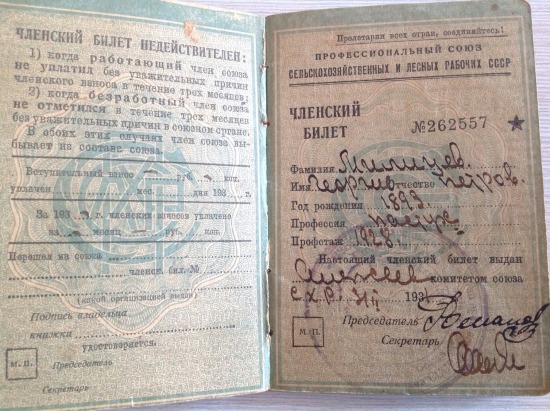 ЧЛЕНСКИЙ БИЛЕТ НЕДЕЙСТВИТЕЛЕН:
1) когда работающий член союза
не уплатил без уважительных причин
членского взноса в течение трех месяцев;
2) когда безработный член союза
не отметился в течение трех месяцев
без уважительных причин в союзном органе.
В обоих этих случаях член союза вы-
бывает из состава союза.
Вступительный взнос руб. коп.
уплачен мес. дня 193 г.
За 193 г. членских взносов уплачено
за месяц руб. коп.
Перешел из союза
членск. бил. №
(какой организацией выдан)
Подпись владельца
книжки
удостоверяется.
М. П.
Председатель
Секретарь
Пролетарии всех стран, соединяйтесь!
ПРОФЕССИОНАЛЬНЫЙ СОЮЗ
СЕЛЬСКОХОЗЯЙСТВЕННЫХ И ЛЕСНЫХ РАБОЧИХ СССР
ЧЛЕНСКИЙ
БИЛЕТ
№262557
Фамилия
Имя Отчество Петров.
Год рождения 1892
Профессия пастух
Профстаж 1928 г.
Настоящий членский билет выдан
комитетом союза
С.Х.Р. 193
Председатель
М. П.
Секретарь